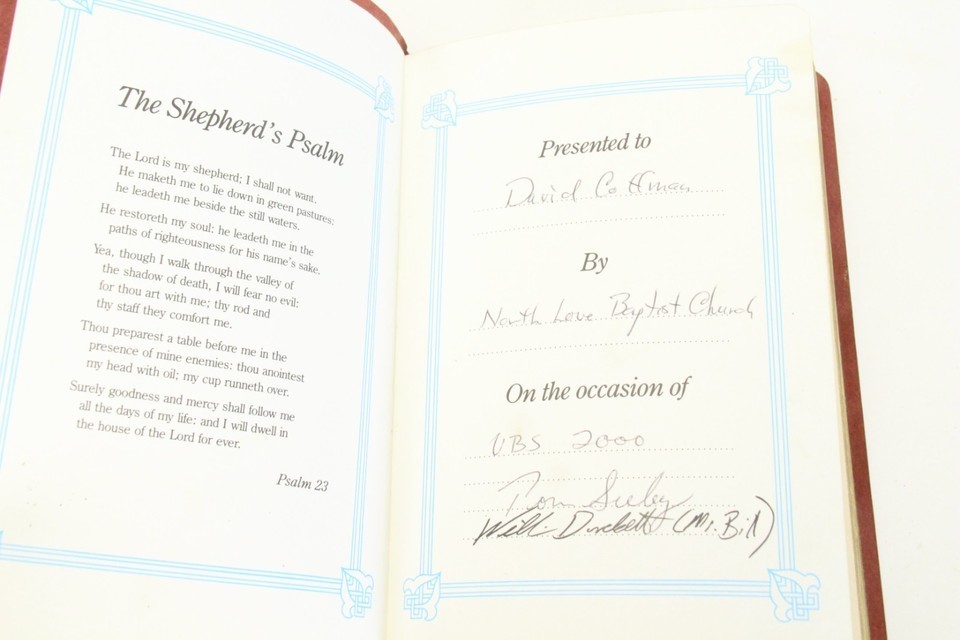 The Shepherd's Psalm
The Lord is my shepherd; I shall not want.
He maketh me to lie down in green pastures:
he leadeth me beside the still waters.
He restoreth my soul: he leadeth me in the
paths of righteousness for his name's sake.
Yea, though I walk through the valley of
the shadow of death, I will fear no evil:
for thou art with me; thy rod and
thy staff they comfort me.
Thou preparest a table before me in the
presence of mine enemies: thou anointest
my head with oil; my cup runneth over.
Surely goodness and mercy shall follow me
all the days of my life: and I will dwell in
the house of the Lord for ever.
Psalm 23
Presented to
David Coffman
By
North Love Baptist Church
On the occasion of
VBS 2000
Tom Seeley
(Mr. Bill)